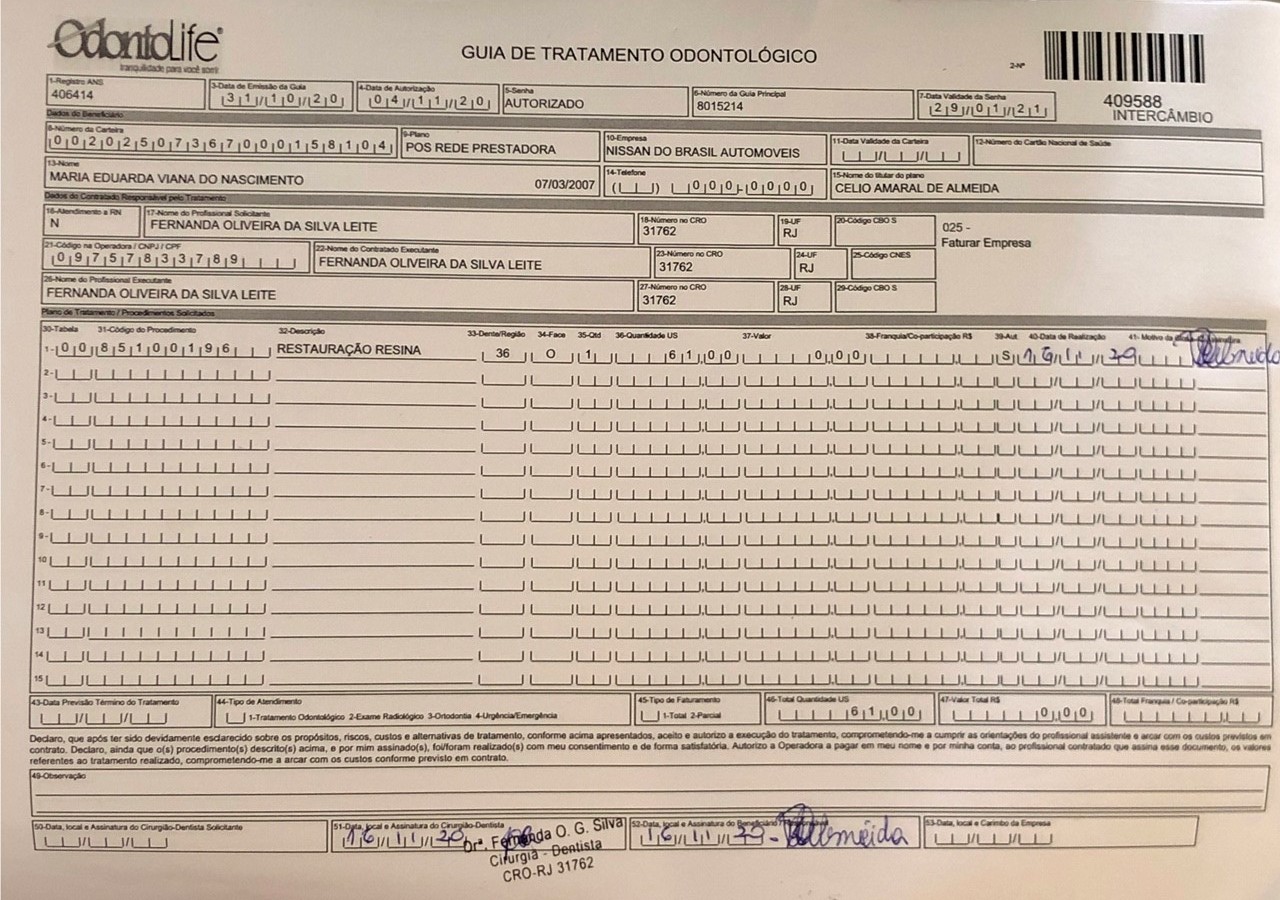 OdontoLife®
tranquilidade para você sorrir
GUIA DE TRATAMENTO ODONTOLÓGICO
2-Nº
409588
INTERCÂMBIO
1-Registro ANS
406414
3-Data de Emissão da Guia
31/10/20
4-Data de Autorização
04/11/20
5-Senha
AUTORIZADO
6-Número da Guia Principal
8015214
7-Data Validade da Senha
29/01/21
Dados do Beneficiário
8-Número da Carteira
00202507367000158104
9-Plano
POS REDE PRESTADORA
10-Empresa
NISSAN DO BRASIL AUTOMOVEIS
11-Data Validade da Carteira
12-Número do Cartão Nacional de Saúde
13-Nome
MARIA EDUARDA VIANA DO NASCIMENTO 07/03/2007
14-Telefone
( ) 000-0000
15-Nome do titular do plano
CELIO AMARAL DE ALMEIDA
Dados do Contratado Responsável pelo Tratamento
16-Atendimento a RN
N
17-Nome do Profissional Solicitante
FERNANDA OLIVEIRA DA SILVA LEITE
18-Número no CRO
31762
19-UF
RJ
20-Código CBO S
025 -
Faturar Empresa
21-Código na Operadora / CNPJ / CPF
09757833789
22-Nome do Contratado Executante
FERNANDA OLIVEIRA DA SILVA LEITE
23-Número no CRO
31762
24-UF
RJ
25-Código CNES
26-Nome do Profissional Executante
FERNANDA OLIVEIRA DA SILVA LEITE
27-Número no CRO
31762
28-UF
RJ
29-Código CBO S
Plano de Tratamento / Procedimentos Solicitados
30-Tabela 31-Código do Procedimento 32-Descrição 33-Dente/Região 34-Face 35-Qtd 36-Quantidade US 37-Valor 38-Franquia/Co-participação R$ 39-Aut. 40-Data de Realização 41- Motivo da
1- 00 85100196 RESTAURAÇÃO RESINA 36 O 1 61,00 0,00 S 16/11/20 Almeida
2-
3-
4-
5-
6-
7-
8-
9-
10
11
12
13
14
15
43-Data Previsão Término do Tratamento
44-Tipo de Atendimento
1-Tratamento Odontológico 2-Exame Radiológico 3-Ortodontia 4-Urgência/Emergência
45-Tipo de Faturamento
1-Total 2-Parcial
46-Total Quantidade US
61,00
47-Valor Total R$
0,00
48-Total Franquia / Co-participação R$
Declaro, que após ter sido devidamente esclarecido sobre os propósitos, riscos, custos e alternativas de tratamento, conforme acima apresentados, aceito e autorizo a execução do tratamento, comprometendo-me a cumprir as orientações do profissional assistente e arcar com os custos previstos em
contrato. Declaro, ainda que o(s) procedimento(s) descrito(s) acima, e por mim assinado(s), foi/foram realizado(s) com meu consentimento e de forma satisfatória. Autorizo a Operadora a pagar em meu nome e por minha conta, ao profissional contratado que assina esse documento, os valores
referentes ao tratamento realizado, comprometendo-me a arcar com os custos conforme previsto em contrato.
49-Observação
50-Data, local e Assinatura do Cirurgião-Dentista Solicitante
51-Data, local e Assinatura do Cirurgião-Dentista
16/11/20
Drª. Fernanda O. G. Silva
Cirurgiã - Dentista
CRO-RJ 31762
52-Data, local e Assinatura do Beneficiário
16/11/20- Almeida
53-Data, local e Carimbo da Empresa